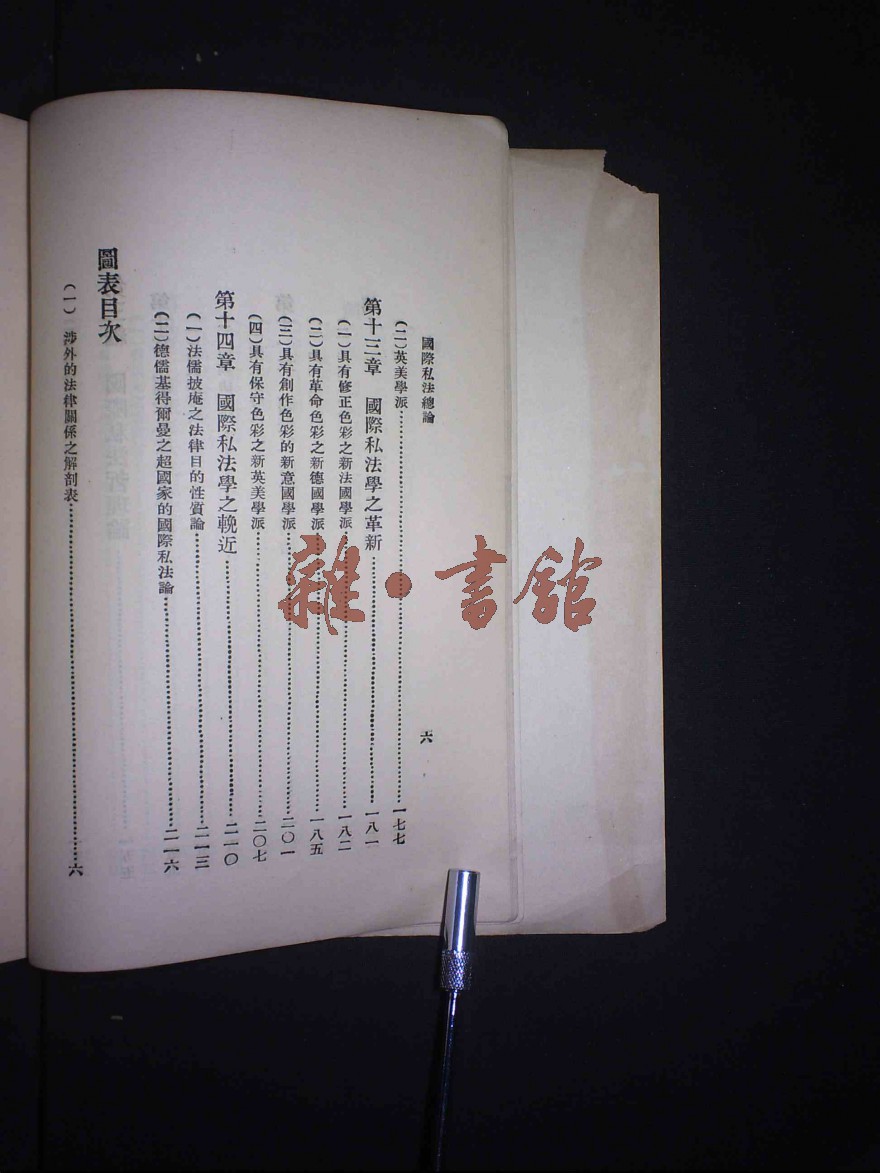 國際私法總論
六
(二)英美學派……一七七
第十三章 國際私法學之革新……一八一
(一)具有修正色彩之新法國學派……一八二
(二)具有革命色彩之新德國學派……一八五
(三)具有創作色彩的新意國學派……二〇一
(四)具有保守色彩之新英美學派……二〇七
第十四章 國際私法學之輓近……二一〇
(一)法儒披庵之法律目的性質論……二一三
(二)德儒基得爾曼之超國家的國際私法論……二一六
圖表目次
(一) 涉外的法律關係之解剖表……六
雜·書館